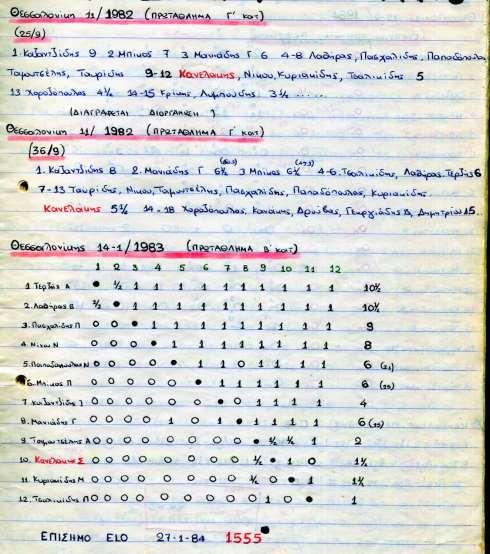 Θεσσαλονικη 11/1982 (Πρωταθλημα Γ' κατ)
(25/9)
1. Καζαντζιδης 9 2 Μπικος 7 3 Μανιαδης Γ 6 4-8 Λαθηρας, Πασχαλιδης, Παπαδοπουλος
Ταμουτσελης, Ταυριδης 9-12 Κανελακης, Νικου, Κυριακιδης, Τσαλικιδης 5
13 Χαροζοπουλος 4½ 14-15 Κρικης, Λυμπουδης 3½ ......
(ΔΙΑΓΡΑΦΕΤΑΙ ΔΙΟΡΓΑΝΩΣΗ)
Θεσσαλονικη 11/1982 (Πρωταθλημα Γ κατ)
(36/9)
1. Καζαντζιδης 8 2. Μανιαδης Γ 6½ 3 Μπικος 6½ 4-6. Τσαλικιδης, Λαθηρας. Τερζης 6
7-13 Ταυριδης, Νικου, Ταμουτσελης, Πασχαλιδης, Παπαδοπουλος, Κυριακιδης.
Κανελακης 5½ 14-18 Χαροζοπουλος, Κανακης, Δρουβας, Γεωργιαδης Δ, Δημητριου 5..
Θεσσαλονικης 14-1/1983 (Πρωταθλημα Β' κατ)
1 2 3 4 5 6 7 8 9 10 11 12
1 Τερζης Α ● ½ 1 1 1 1 1 1 1 1 1 1 10½
2. Λαθηρας Β ½ ● 1 1 1 1 1 1 1 1 1 1 10½
3. Πασχαλιδης Π 0 0 ● 1 1 1 1 1 1 1 1 1 9
4. Νικου Ν 0 0 0 ● 1 1 1 1 1 1 1 1 8
5. Παπαδοπουλος Ν 0 0 0 0 ● 1 1 0 1 1 1 1 6
6. Μπικος Π 0 0 0 0 0 ● 1 1 1 1 1 1 6
7. Καζαντζιδης 0 0 0 0 0 0 ● 0 1 1 1 1 4
8. Μανιαδης Γ 0 0 0 0 1 0 1 ● 1 1 1 1 6
9. Ταμουτσελης Α 0 0 0 0 0 0 0 0 ● ½ ½ 1 2
10. Κανελακης Σ 0 0 0 0 0 0 0 0 ½ ● 1 0 1½
11. Κυριακιδης Μ 0 0 0 0 0 0 0 0 ½ 0 ● 1 1½
12. Τσαλικιδης Π 0 0 0 0 0 0 0 0 0 1 0 ● 1
ΕΠΙΣΗΜΟ ELO 27-1-84 1555